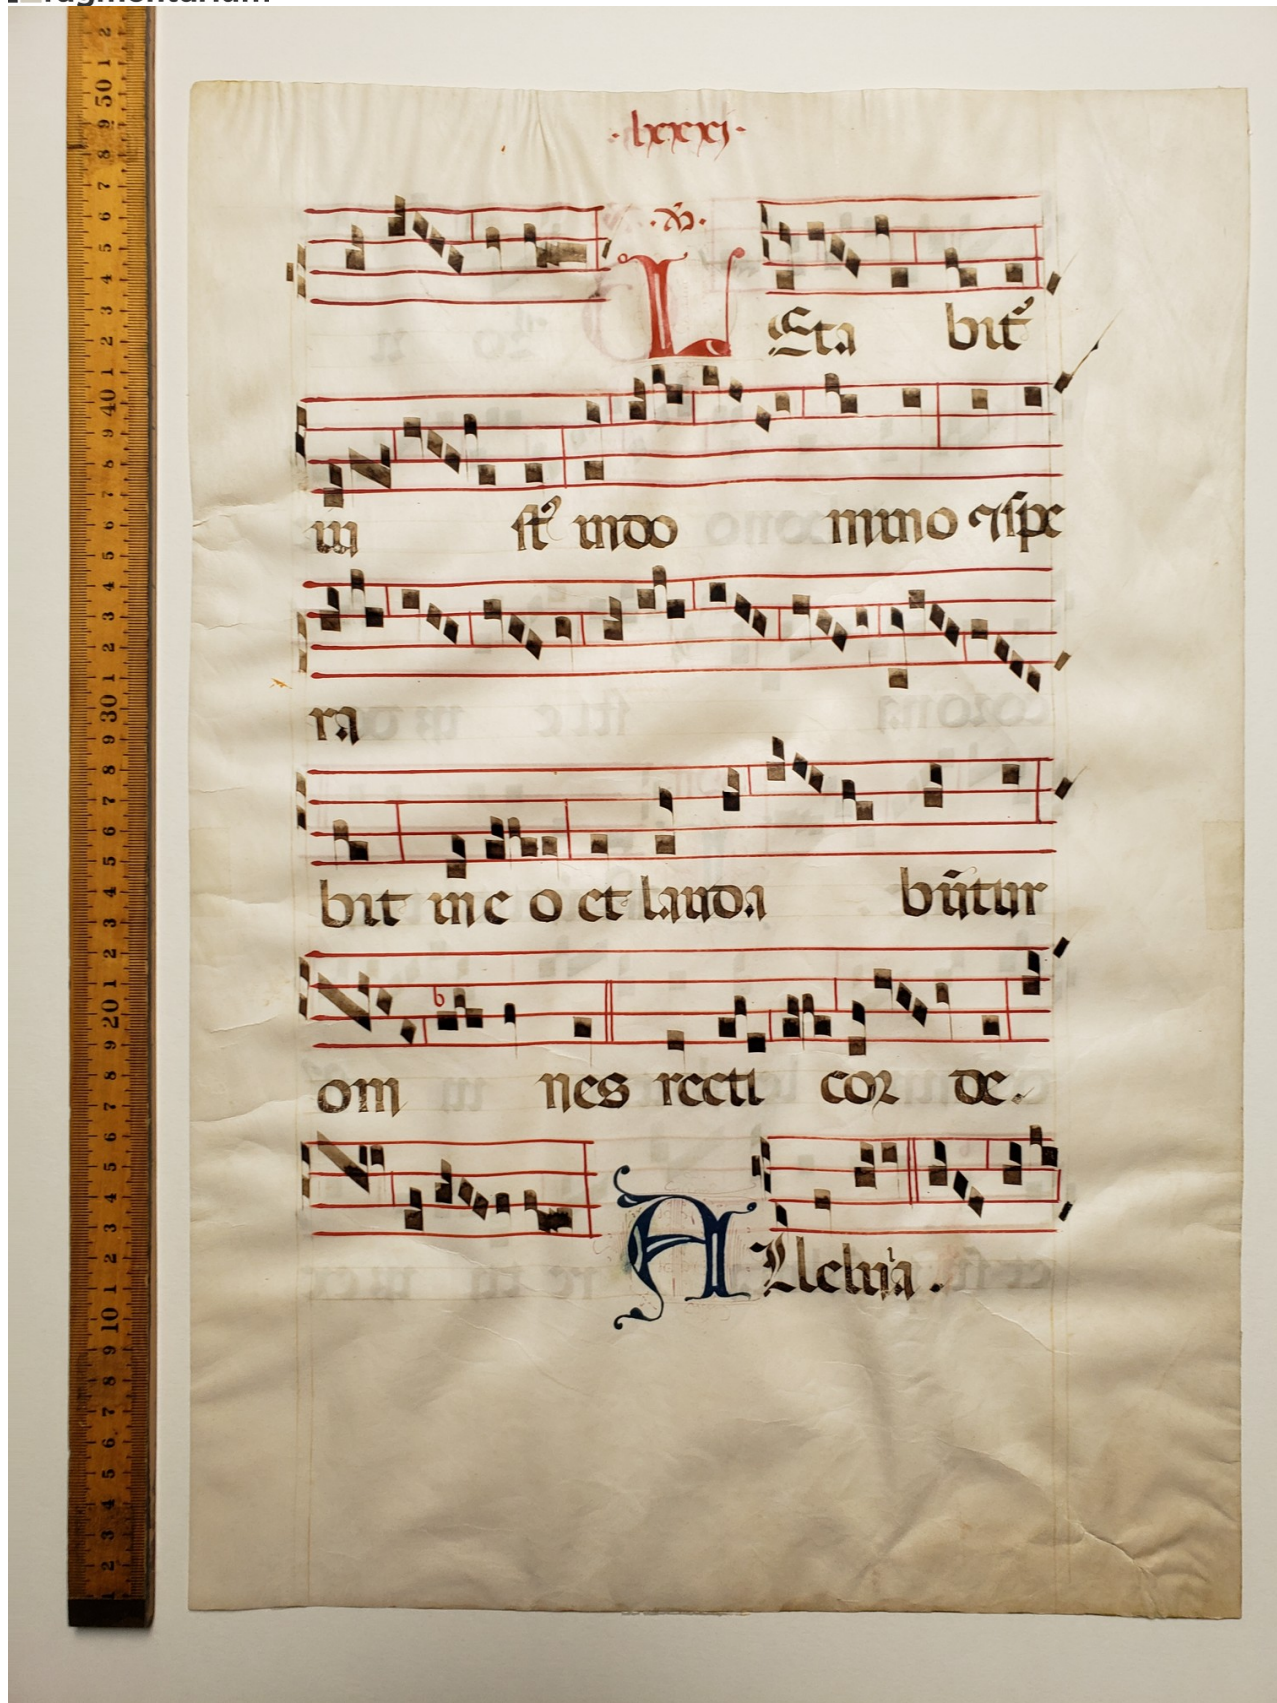 ·lxxxj·
LEta bit᷒
iu st᷒ indo mino ⁊ spe
ra
bit in e o et lauda bũtur
om nes recti cor de.
ALleluia.